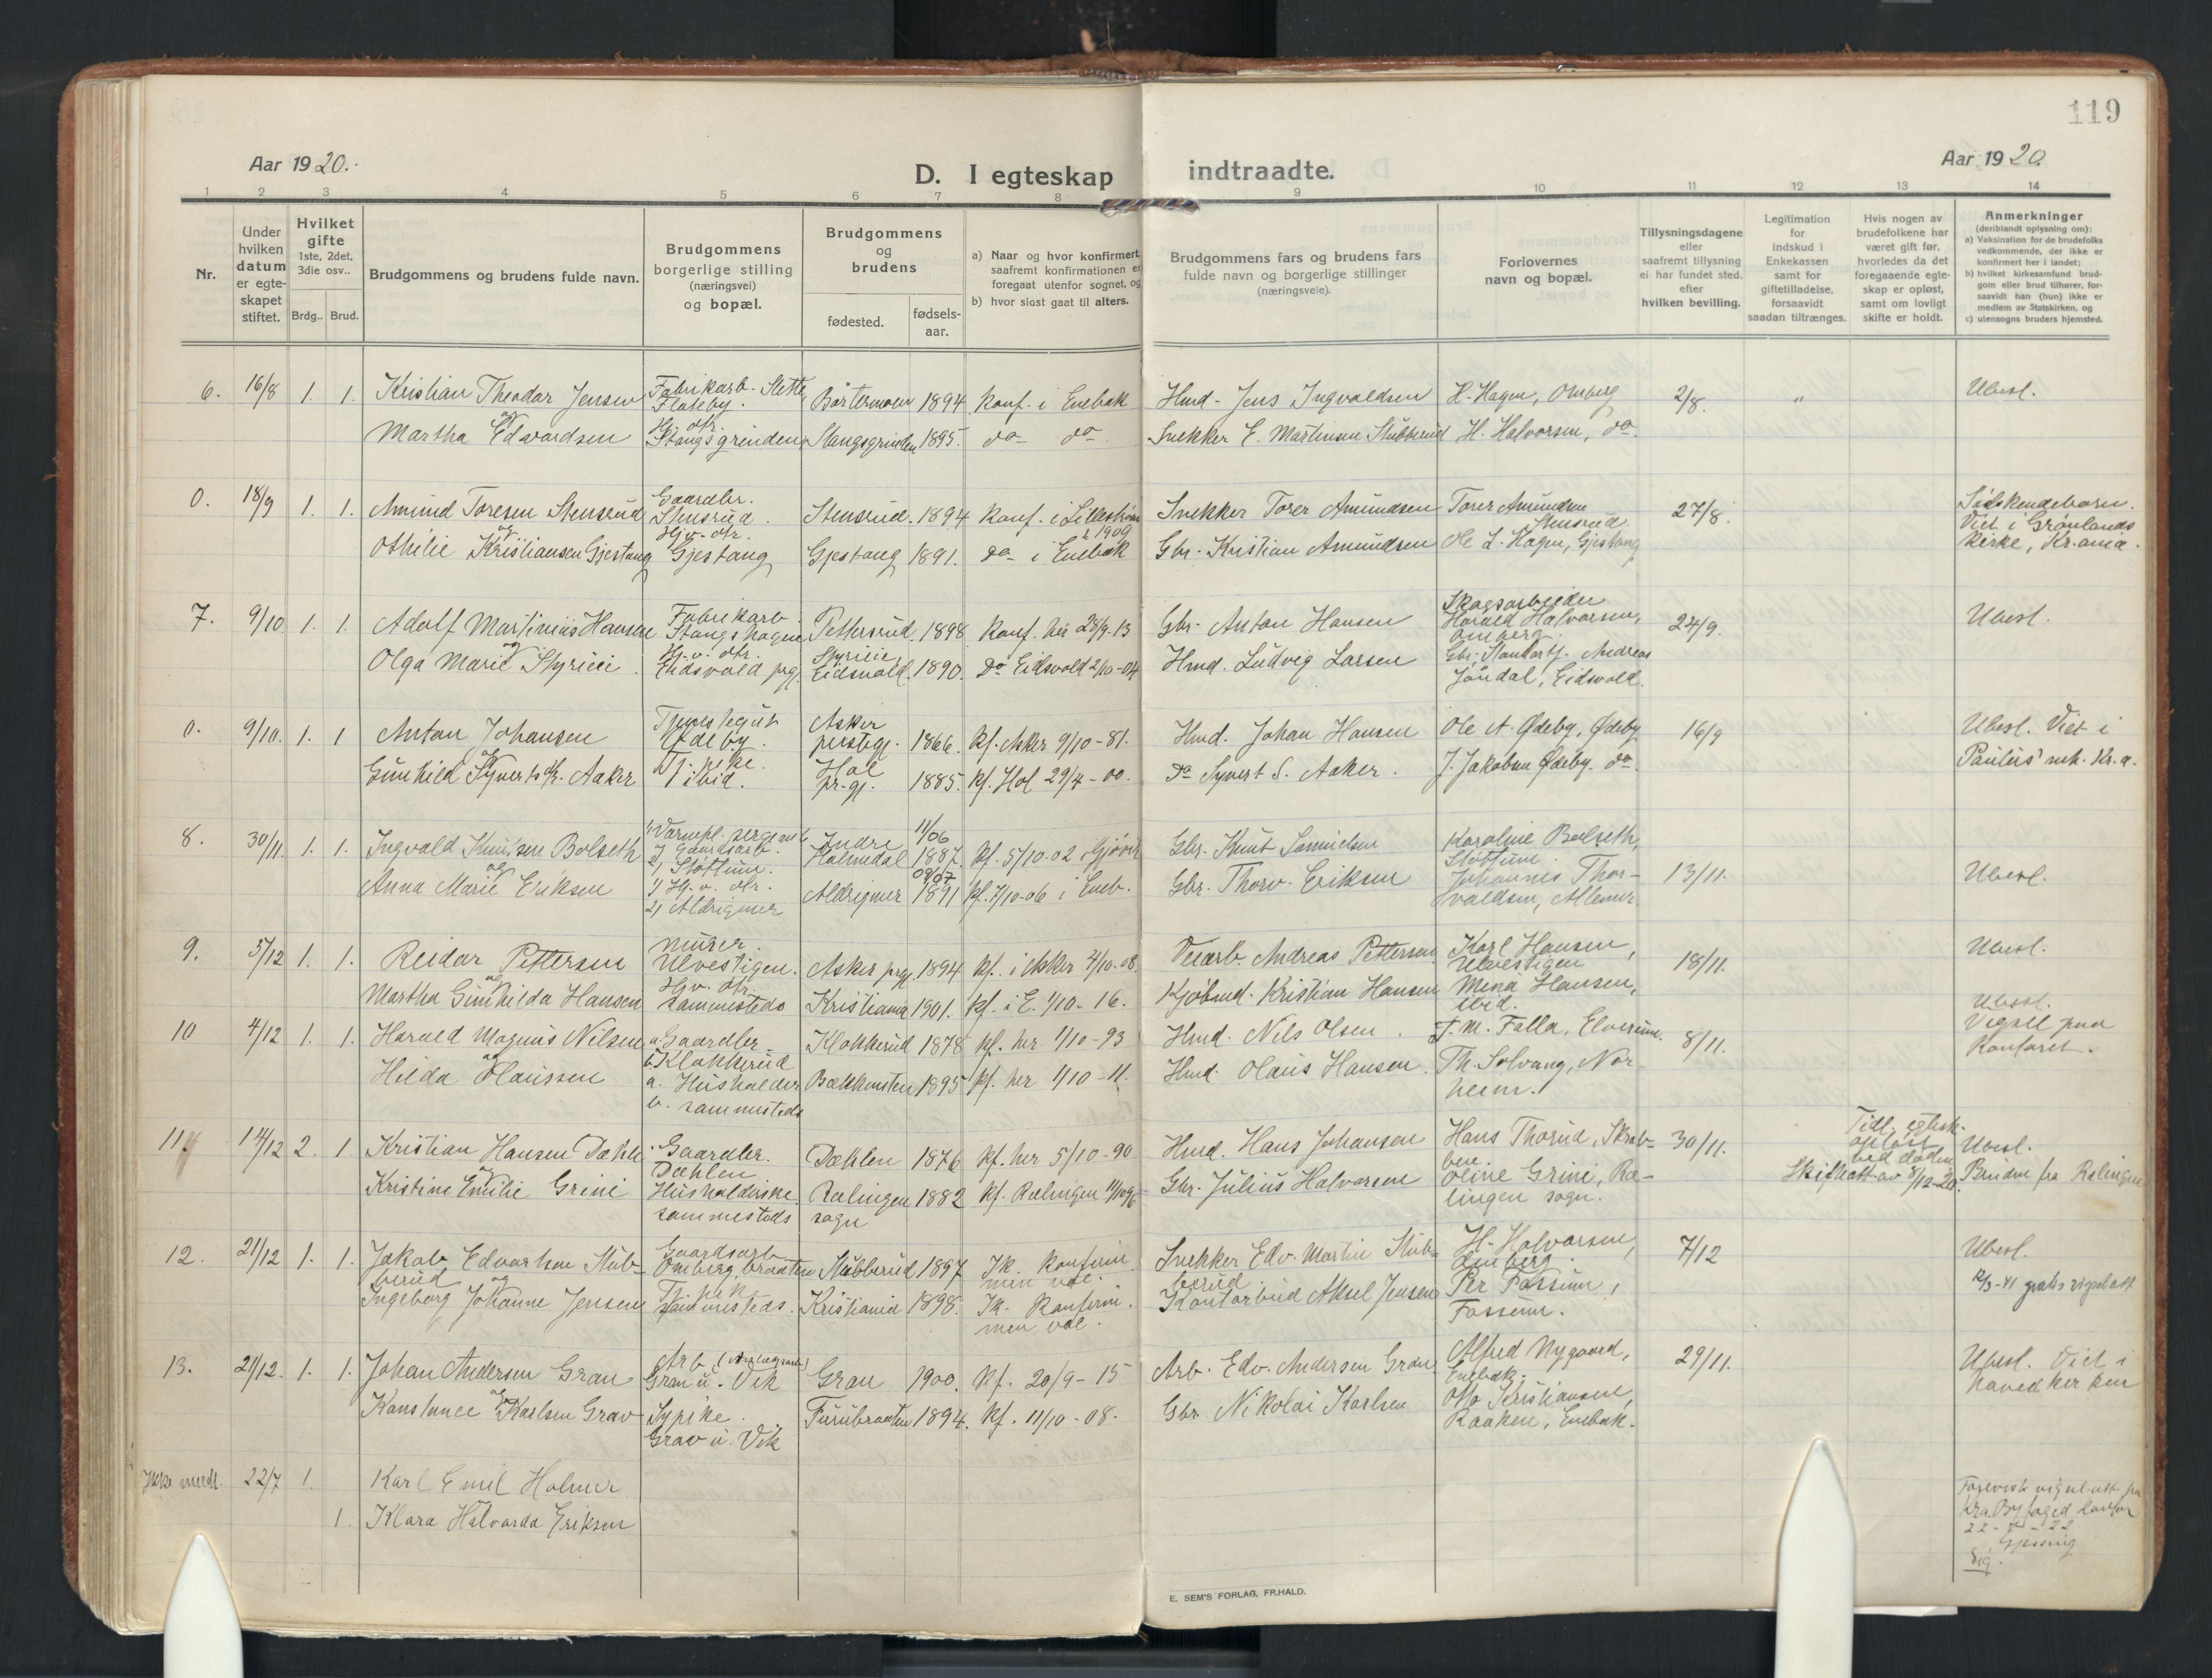 119
Aar 1920.
D. I egteskap indtraadte.
Aar 1920
1 2 3 4 5 6 7 8 9 10 11 12 13 14
Nr.
Under hvilken datum er egteskapet stiftet.
Hvilket gifte 1ste, 2det, 3die osv..
Brdg.. Brud.
Brudgommens og brudens fulde navn.
Brudgommens borgerlige stilling (næringsvei) og bopæl.
Brudgommens og brudens
fødested.
fødselsaar.
a) Naar og hvor konfirmert, saafremt konfirmationen er foregaat utenfor sognet, og
b) hvor sidst gaat til alters.
Brudgommens fars og brudens fars fulde navn og borgerlige stillinger (næringsveie).
Forlovernes navn og bopæl.
Tillysningsdagene eller saafremt tillysning ei har fundet sted. efter hvilken bevilling.
Legitimation for indskud i Enkekassen samt for giftetilladelse, forsaavidt saadan tiltrænges.
Hvis nogen av brudefolkene har været gift før, hvorledes da det foregaaende egteskap er opløst, samt om lovligt skifte er holdt.
Anmerkninger (deriblandt oplysning om):
a) Vaksination for de brudefolks vedkommende, der ikke er konfirmert her i landet;
b) hvilket kirkesamfund brudgom eller brud tilhører, forsaavidt han (hun) ikke er medlem av Statskirken, og
c) utensogns bruders hjemsted.
6. 16/8 1. 1. Kristian Theodor Jensen Fabrikarb. Slette, Flateby. Börtermoen 1894 Konf. i Enebak Hmd. Jens Ingvaldsen H. Hagen, Omberg 2/8. " Ubesl.
og
Martha Edvardsen Hj. dtr. Stangsgrinden Stangsgrinden 1895. do do Snekker E. Martinsen Stubberud H. Halvorsen, do.
0. 18/9 1. 1. Amund Toresen Stensrud Gaardbr. Stensrud. Stensrud. 1894 Konf. i Lillestrøm 1909 Snekker Torer Amundsen Torer Amundsen Stensrud 27/8. Södskendebarn. Viet i Grönlands kirke, Kr.ania.
og
Othilie Kristiansen Gjestang Hj. v. dtr. Gjestang Gjestang 1891. do i Enebak Gbr. Kristian Amundsen Ole L. Hagen, Gjestang
7. 9/10 1. 1. Adolf Martinius Hansen Fabrikarb. Stangshagen Pettersrud. 1898 Konf. her 28/9-13 Gbr. Anton Hansen Skogsarbeider Harald Halvorsen, Omberg. 24/9. Ubesl.
og
Olga Marie Styrici. Hj. v. dtr. Eidsvold prgj. Eidsvold. 1890. do Eidsvold 2/10-04 Hmd. Ludvig Larsen Gbr. Andreas Jöndal, Eidsvold.
0. 9/10. 1. 1 Anton Johansen Ødeby. Asker prestegj. 1866. Kf. Asker 9/10-81. Hmd. Johan Hansen Ole A. Ødeby, Ødeby 16/9 Ubesl. Viet i Paulus' mk. Kr.a.
og
Gunhild Syvertsdtr. Aaker Tj. pike. ibid. Hol pr.gj. 1885. Kf. Hol 29/4-00. do Syvert S. Aaker. J. Jakobsen Ødeby. do
8. 30/11. 1. 1. Ingvald Knutsen Bolseth 1) Vernepl. sergeant 2) Gaardsarb. 2) Støttum. Indre Holmedal 11/06 1887. Kf. 5/10.02 i Gjövik Gbr. Knut Samuelsen Karoline Bolseth, Støttum. 13/11. Ubesl.
og
Anna Marie Eriksen 1) Hj. v. dtr. 2) Aldrigmer Aldrigmer 1891 Kf. 7/10-06 i Eneb. Gbr. Thorv. Eriksen Johannes Thorvaldsen,
9. 5/12 1. 1. Reidar Pettersen Murer. Ulvestigen. Asker prgj. 1894 Kf. i Asker 4/10.08. Veiarb. Andreas Pettersen Karl Hansen, Ulvestigen 18/11. Ubesl.
og
Martha Gunhilda Hansen Hj. v. dtr. sammesteds Kristiania 1901. Kf. i E. 1/10-16. Kjøbmd. Kristian Hansen Mina Hansen, ibid.
10 4/12 1. 1. Harald Magnus Nilsen a. Gaardbr. b. Klokkerud Klokkerud 1878 Kf. her 1/10-93 Hmd. Nils Olsen. T. M. Falla, Elverum. 8/11. Ubesl. Vigsel paa Kontoret.
og
Hilda Olaussen a. Husholder b. sammesteds Bækkensten 1895 Kf. her 1/10-11. Hmd. Olaus Hansen Th. Solvang, Norheim.
11. 14/12 2. 1. Kristian Hansen Dæhle Gaardbr. Dæhlen Dæhlen 1876 Kf. her 5/10-90 Hmd. Hans Johansen Hans Thorud, 30/11. Tidl. egtesk. opløst ved døden Skifteatt. av 8/12-20. Ubesl. Bruden fra Rælingen
og
Kristine Emilie Greni Husholderske sammesteds Rælingen sogn 1882 Kf. Rælingen Gbr. Julius Halvorsen Oline Grini, Rælingen sogn.
12. 21/12 1. 1. Jakob Edvartsen Stubberud Gaardsarb. Ombergbraaten Stubberud 1897 Ik. konfirm. men vol. Snekker Edv. Martin Stubberud H. Halvorsen, Omberg 7/12 Ubesl.
og
Ingeborg Johanne Jensen sammesteds. Kristiania 1898. Ik. konfirm. men vol. Kontorbud Aksel Jensen Per Fossum, Fossum. 12/3-41 gratis vigselatt
13. 21/12. 1. 1. Johan Andersen Gran Arb. Gran u. Vik Gran 1900. Kf. 20/9-15 Arb. Edv. Andersen Gran Alfred Nygaard, Enebak. 29/11. Ubesl. Viet i hovedkirken
og
Konstance Karlsen Grav Sypike. Grav u. Vik Furubraaten 1894. Kf. 11/10-08. Gbr. Nikolai Karlsen Otto Kristiansen, Raaken, Enebak.
Ikke meldt. 22/7 1. Karl Emil Holmer
1. Klara Halvarda Eriksen
Forevist vigsel.att. fra Kra. Byfoged kontor
22-
Gjessing
sig.
E. SEM'S FORLAG, FR.HALD.